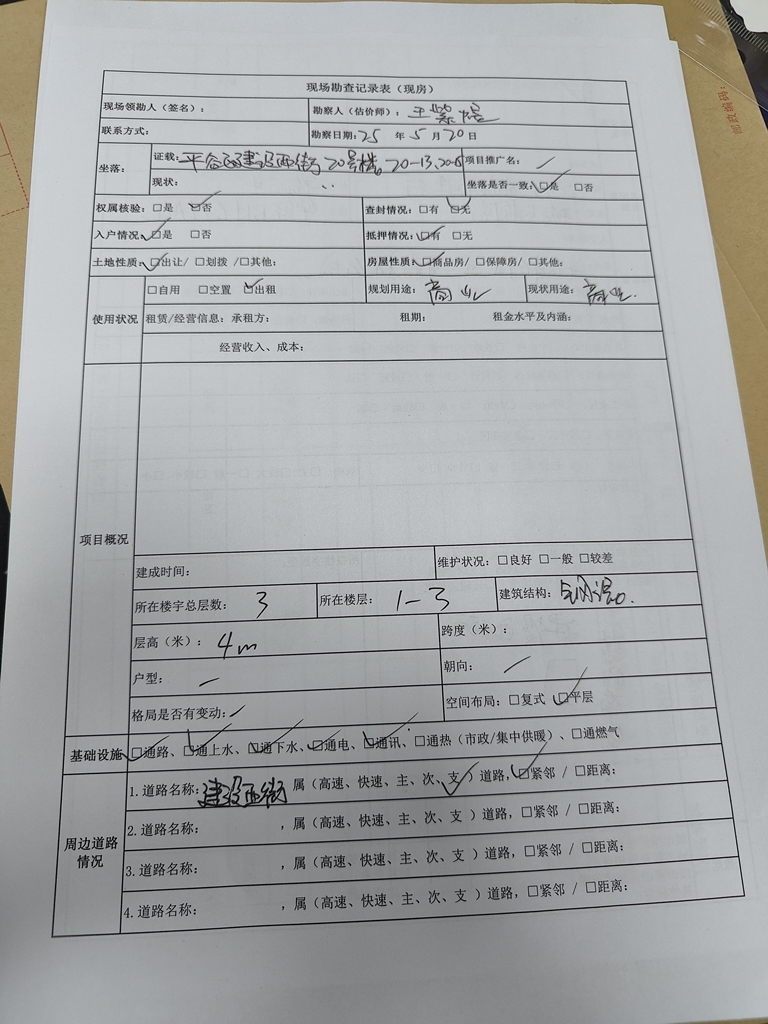 现场勘查记录表（现房）
现场领勘人（签名）： 勘察人（估价师）：王
联系方式： 勘察日期：25 年 5 月 20 日
坐落： 证载：平谷区建设西街20号楼20-13, 项目推广名：/
现状： 坐落是否一致：☑是 □否
权属核验：□是 ☑否 查封情况：□有 ☑无
入户情况：☑是 □否 抵押情况：☑有 □无
土地性质：☑出让/ □划拨 /□其他： 房屋性质：☑商品房/ □保障房/ □其他：
使用状况 □自用 □空置 ☑出租 规划用途：商业 现状用途：商业.
租赁/经营信息：承租方： 租期： 租金水平及内涵：
经营收入、成本：
项目概况
建成时间： 维护状况：□良好 □一般 □较差
所在楼宇总层数：3 所在楼层：1-3 建筑结构：钢混.
层高（米）：4m 跨度（米）：
户型：/ 朝向：/
格局是否有变动：/ 空间布局：□复式 ☑平层
基础设施 ☑通路、☑通上水、☑通下水、☑通电、☑通讯、□通热（市政/集中供暖）、□通燃气
周边道路情况 1.道路名称：建设西街，属（高速、快速、主、次、支✓）道路，☑紧邻 / □距离：
2.道路名称： ，属（高速、快速、主、次、支 ）道路，□紧邻 / □距离：
3.道路名称： ，属（高速、快速、主、次、支 ）道路，□紧邻 / □距离：
4.道路名称： ，属（高速、快速、主、次、支 ）道路，□紧邻 / □距离：
邮政编码：